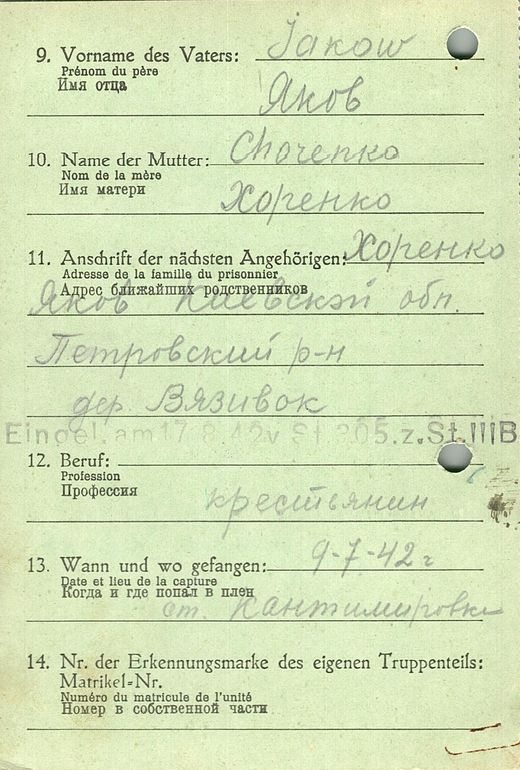 9. Vorname des Vaters: Jakow
Prénom du père
Имя отца
Яков
10. Name der Mutter: Chorenko
Nom de la mère
Имя матери
Хоренко
11. Anschrift der nächsten Angehörigen: Хоренко
Adresse de la famille du prisonnier
Адрес ближайших родственников
Яков Киевской обл.
Петровский р-н
дер. Вязивок
Eingel. am 17.8.42 v St 305. z. St. III B
12. Beruf:
Profession
Профессия
крестьянин
13. Wann und wo gefangen: 9-7-42 г
Date et lieu de la capture
Когда и где попал в плен
ст. Кантимировка
14. Nr. der Erkennungsmarke des eigenen Truppenteils:
Matrikel=Nr.
Numéro du matricule de l'unité
Номер в собственной части